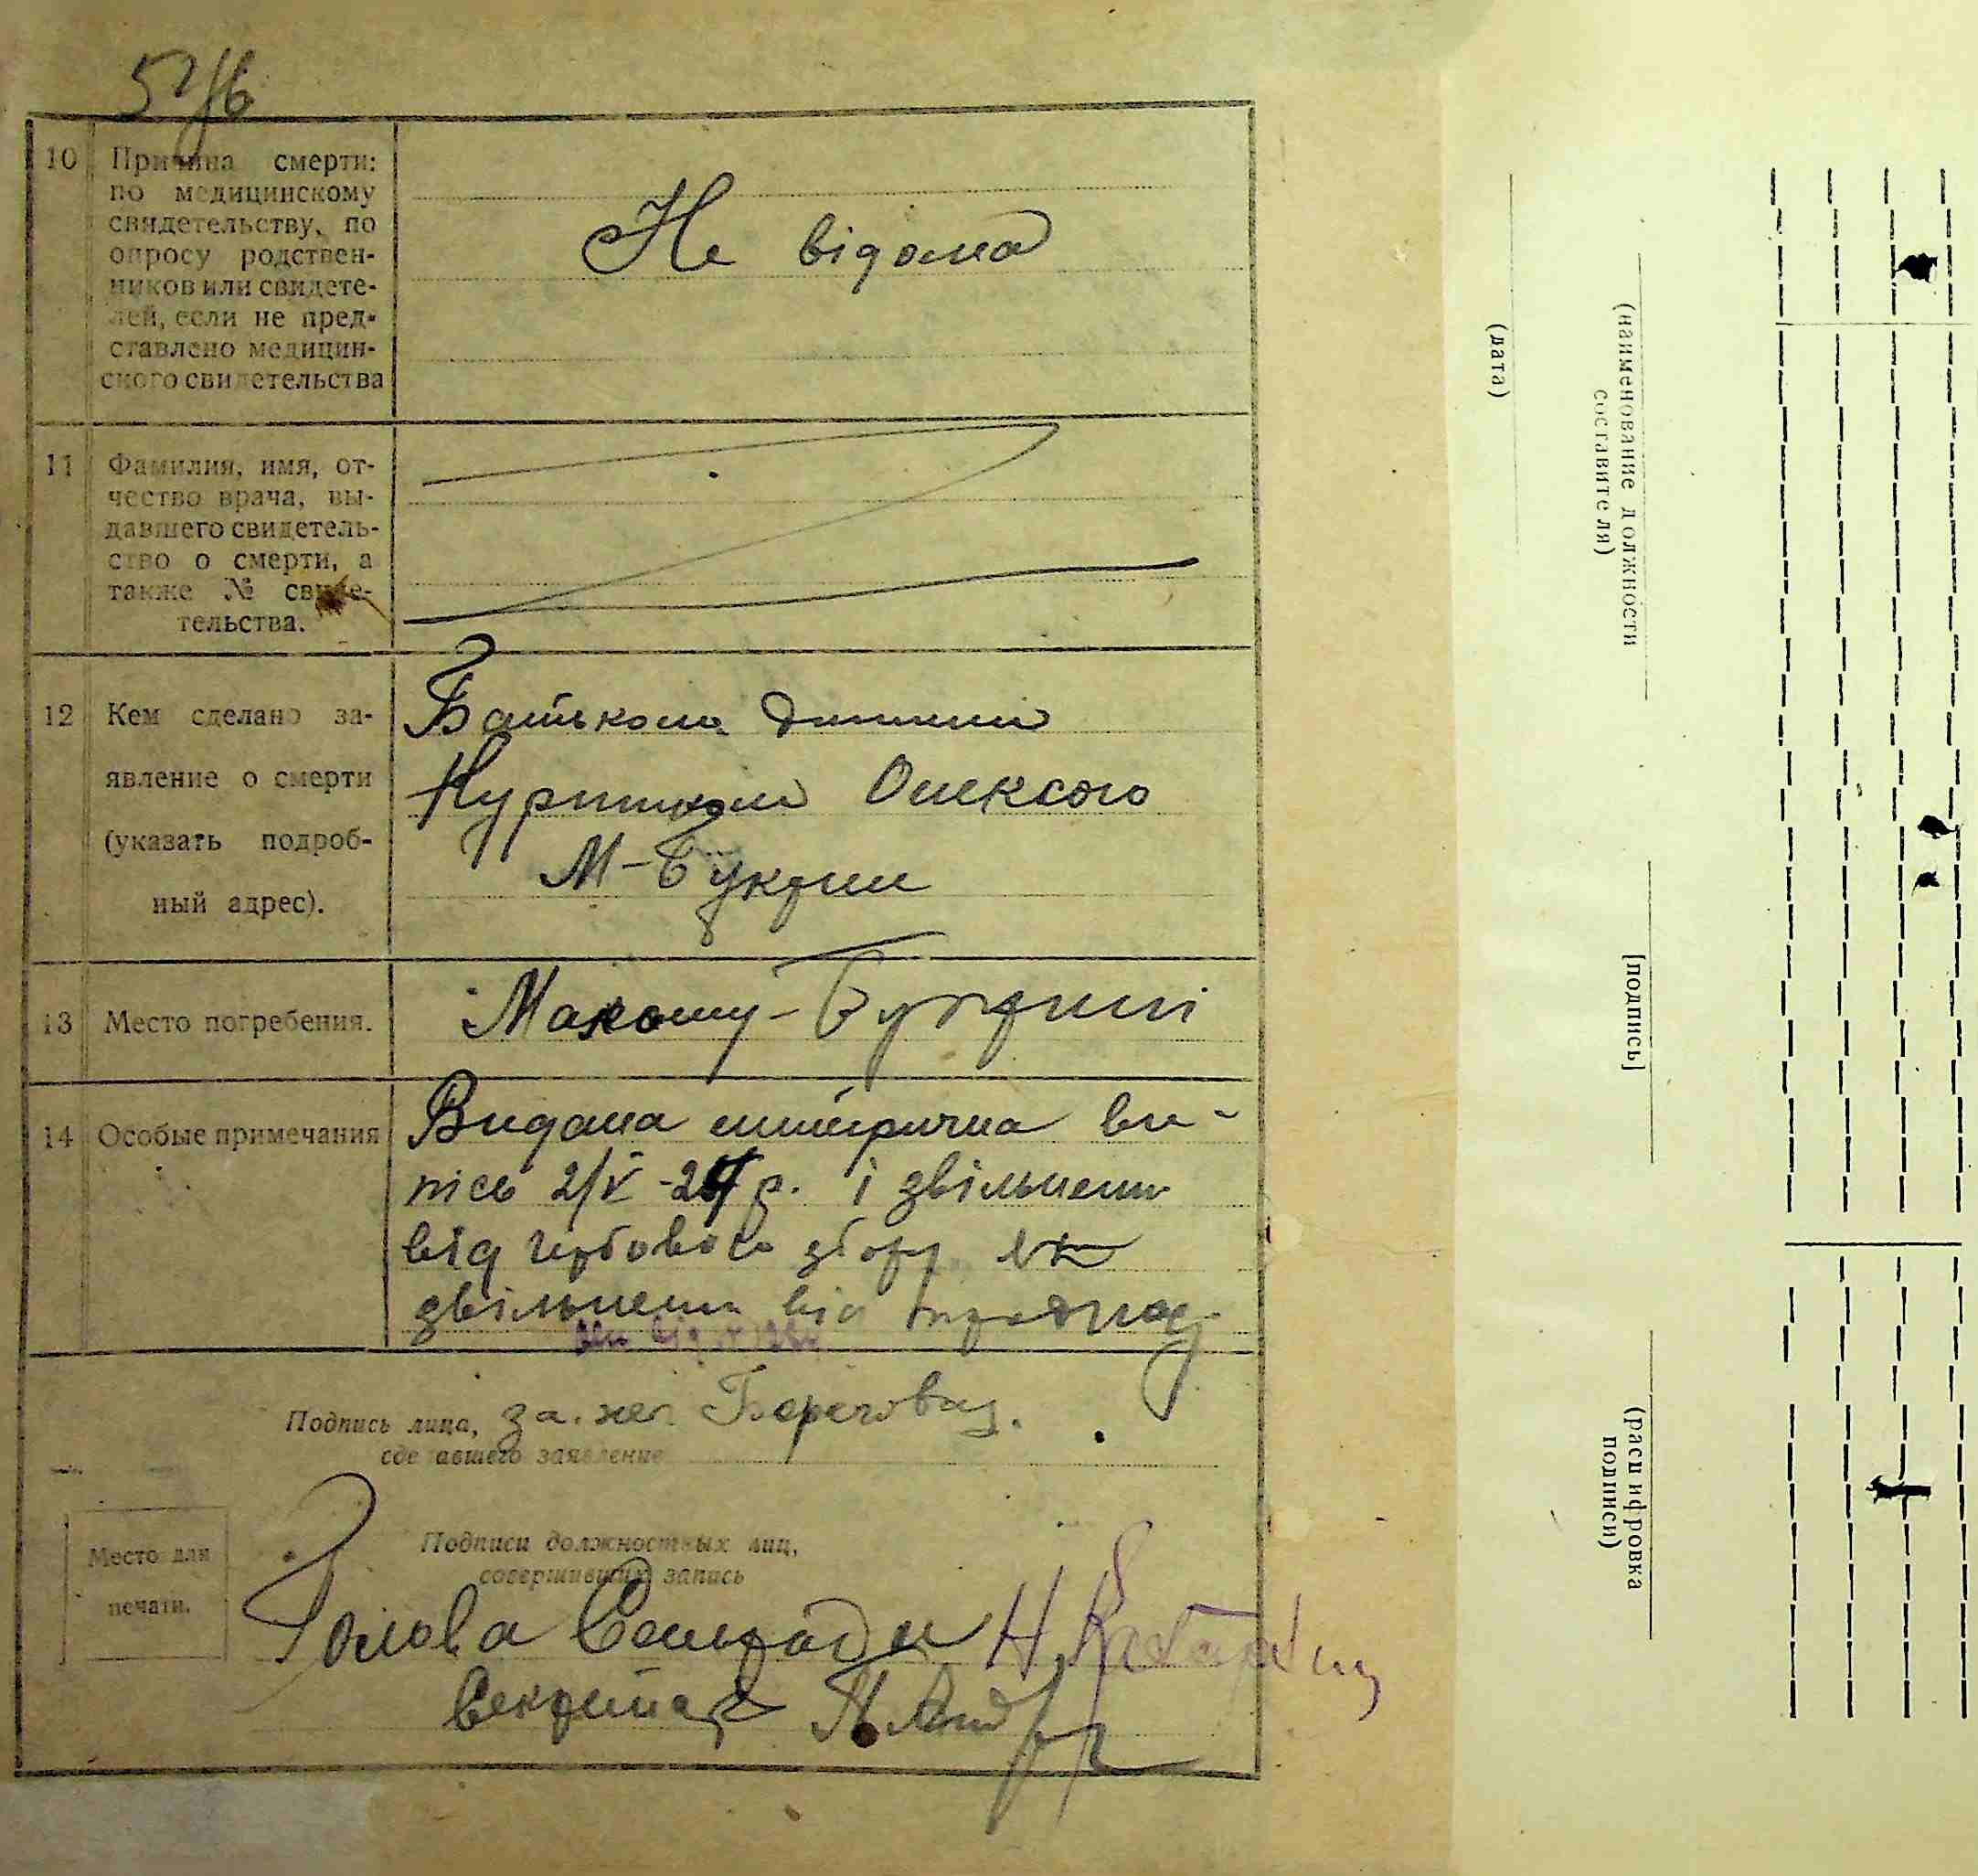 10 Причина смерти:
по медицинскому
свидетельству, по
опросу родствен-
ников или свидете-
лей, если не пред-
ставлено медицин-
ского свидетельства
Не відома
11 Фамилия, имя, от-
чество врача, вы-
давшего свидетель-
ство о смерти, а
также № свиде-
тельства.
12 Кем сделано за-
явление о смерти
(указать подроб-
ный адрес).
Батьком дитини
Олексою
М-Букрин
13 Место погребения.
Макому-Букрині
14 Особые примечания
Видана метрична ви-
пісь 2/V-24 р. і звільнени
від гербового збору
звільнени від
Подпись лица, за. нег.
сделавшего заявление
Место для
печати.
Подписи должностных лиц,
совершивших запись
Голова Сельради Н.
Секретар
(дата)
(наименование должности
составителя)
[подпись]
(расшифровка
подписи)